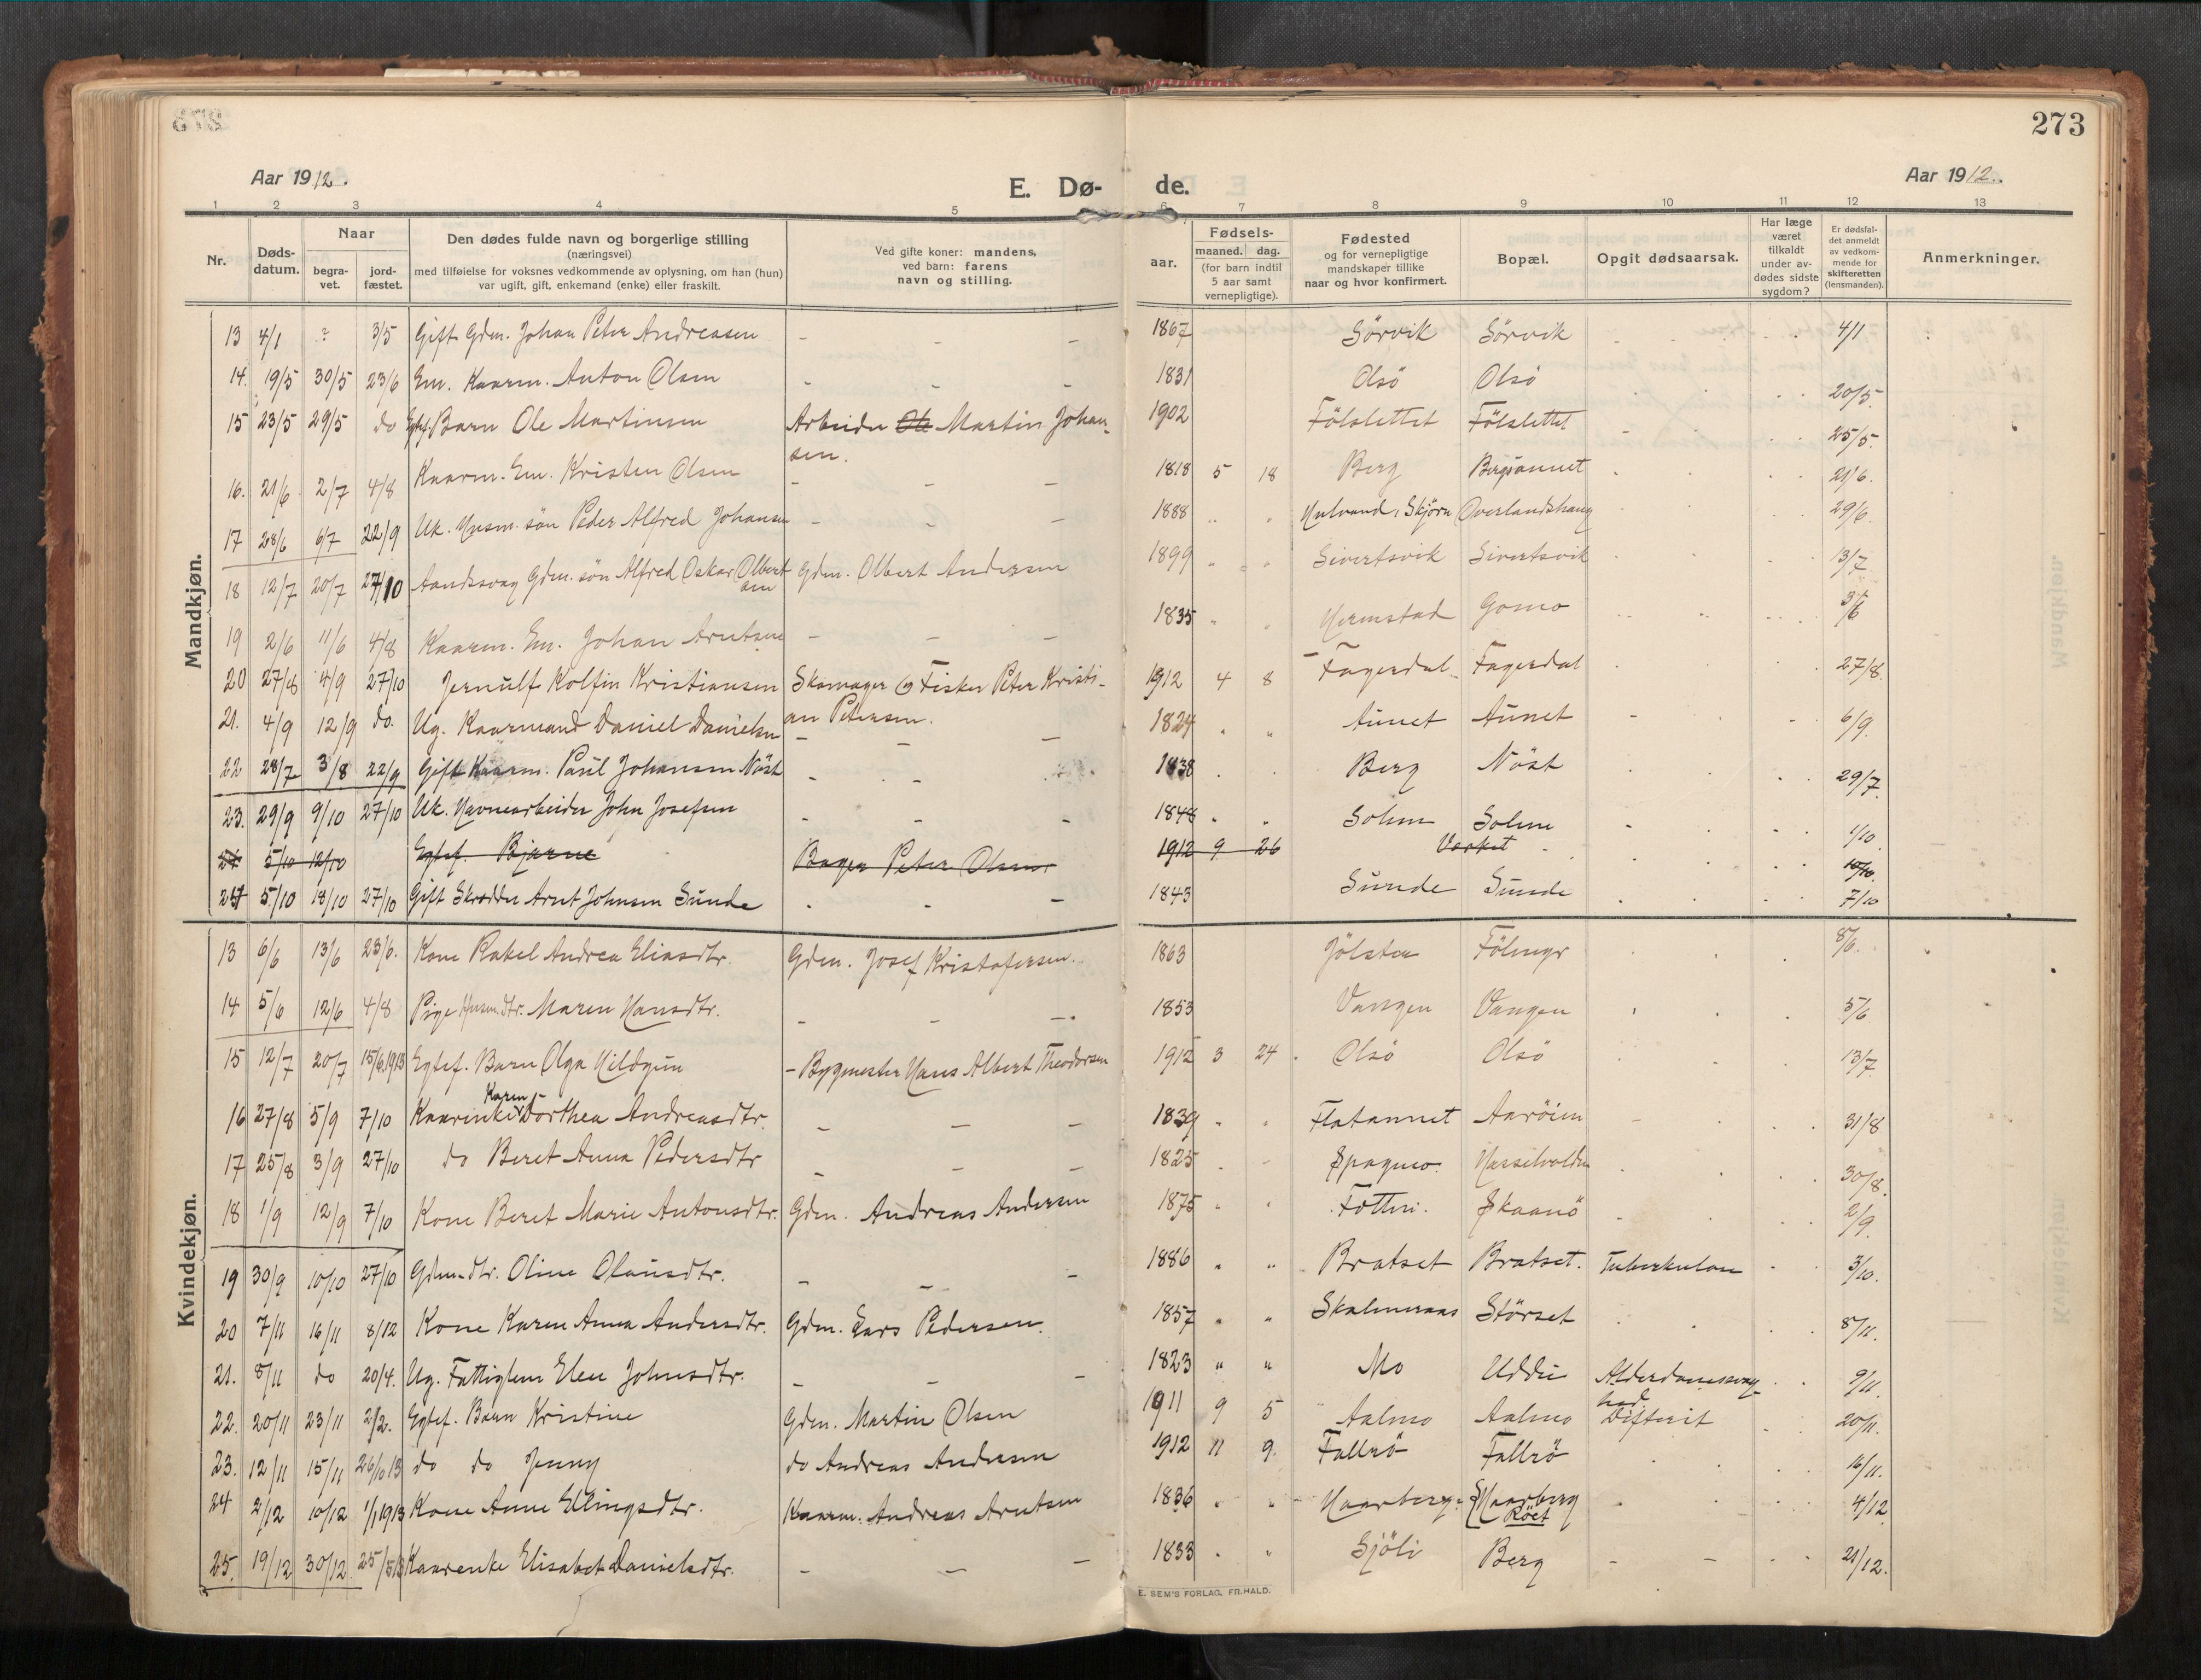 273
Aar 1912.
E. Dø-
de.
Aar 1912.
1 2 3 4 5 6 7 8 9 10 11 12 13
Nr.
Døds-
datum.
Naar
begra-
vet.
jord-
fæstet.
Den dødes fulde navn og borgerlige stilling
(næringsvei)
med tilføielse for voksnes vedkommende av oplysning, om han (hun)
var ugift, gift, enkemand (enke) eller fraskilt.
Ved gifte koner: mandens,
ved barn: farens
navn og stilling.
aar.
Fødsels-
maaned. dag.
(for barn indtil
5 aar samt
vernepligtige).
Fødested
og for vernepligtige
mandskaper tillike
naar og hvor konfirmert.
Bopæl.
Opgit dødsaarsak.
Har læge
været
tilkaldt
under av-
dødes sidste
sygdom?
Er dødsfal-
det anmeldt
av vedkom-
mende for
skifteretten
(lensmanden).
Anmerkninger.
Mandkjøn.
13 4/1 ? 3/5 Gift Gdm. Johan Peter Andreasen - - - 1867 Sörvik Sörvik 4/1
14. 19/5 30/5 23/6 Em. Kaarm. Anton Olsen - - - 1831 Olsö Olsö 20/5.
15 23/5 29/5 do Egtef. Barn Ole Martinsen Arbeider Ole Martin Johan-
sen. 1902 Fölslettet Fölslettet 25/5.
16. 21/6 2/7 4/8 Kaarm. Em. Kristen Olsen - - - 1818 5 18 Berg Bergsaunet 21/6.
17 28/6 6/7 22/9 Uk. Husm. søn Peder Alfred Johansen - - - 1888 Skjörn Overlandshaug 29/6
18 12/7 20/7 27/10 Aandssvag Gdm. søn Alfred Oskar Olbert
sen Gdm. Olbert Andersen 1899 Sivertsvik Sivertsvik 13/7
19 2/6 11/6 4/8 Kaarm. Em. Johan Arntsen - - - 1835 Hermstad Gomo 3/6
20 27/8 4/9 27/10 Jernulf Kolfin Kristiansen Skomager og Fisker Peter Kristi-
an Petersen. 1912 4 8 Fagerdal Fagerdal 27/8.
21. 4/9 12/9 do. Ug. Kaarmand Daniel Danielsen - - - 1824 Aunet Aunet 6/9.
22 28/7 3/8 22/9 Gift Kaarm. Paul Johansen Nöst - - 1838 Berg Nöst 29/7.
23. 29/9 9/10 27/10 Uk. Havnearbeider John Josefsen - - - 1848 Solem Solem 1/10
24 5/10 12/10 Egtef. Bjarne Bager Peter Olsen 1912 9 26 Værket 10/10.
24 5/10 18/10 27/10 Gift Skrædder Arnt Johnsen Sunde - - - 1843 Sunde Sunde 7/10
Kvindekjøn.
13 6/6 13/6 23/6. Kone Rakel Andrea Eliasdtr. Gdm. Josef Kristofersen. 1863 Jölster Fölmyr 8/6.
14 5/6 12/6 4/8 Pige Husm.dtr. Maren Hansdtr. - - - 1853 Vangen Vangen 5/6
15 12/7 20/7 15/6 1913 Egtef. Barn Olga Hildgun - Bygmester Hans Albert Theodorsen 1912 3 24 Olsö Olsö 13/7.
16 27/8 5/9 7/10 Kaarenke Karen Dorthea Andreasdtr. - - - 1839 Flatannet Aaröien 31/8
17 25/8 3/9 27/10 do Beret Anna Pedersdtr - - - 1825 Spagmo. Hasselvolden 30/8.
18 1/9 12/9 7/10 Kone Beret Marie Antonsdtr. Gdm. Andreas Andersen 1875 Fotteri. Skaanö 2/9.
19 30/9 10/10 27/10 Gdm-dtr. Oline Olausdtr. - - - 1886 Bratset Bratset. Tuberkulose 3/10.
20 7/11 16/11 8/12 Kone Karen Anna Andersdtr. Gdm. Lars Pedersen. 1857 Skalmeraas Störset 8/11.
21. 8/11 do 20/4. Ug. Fattiglem Elen Johnsdtr. - - - 1823 Mo Uddu Alderdomssvag-
hed 9/11.
22. 20/11 23/11 2/2. Egtef. Barn Kristine Gdm. Martin Olsen 1911 9 5 Aalmo Aalmo Difterit 20/11.
23. 12/11 15/11 26/10 13 do do Jenny do Andreas Andersen 1912 11 9. Fallrö Fallrö 16/11.
24 2/12 10/12 1/1 1913 Kone Anne Ellingsdtr. Kaarm. Andreas Arntsen 1836 Haarberg Haarberg
Röet 4/12
25. 19/12 30/12 25/5 13 Kaarenke Elisabet Danielsdtr. - - - 1833 Sjöli Berg 21/12.
E. SEM'S FORLAG, FR.HALD.